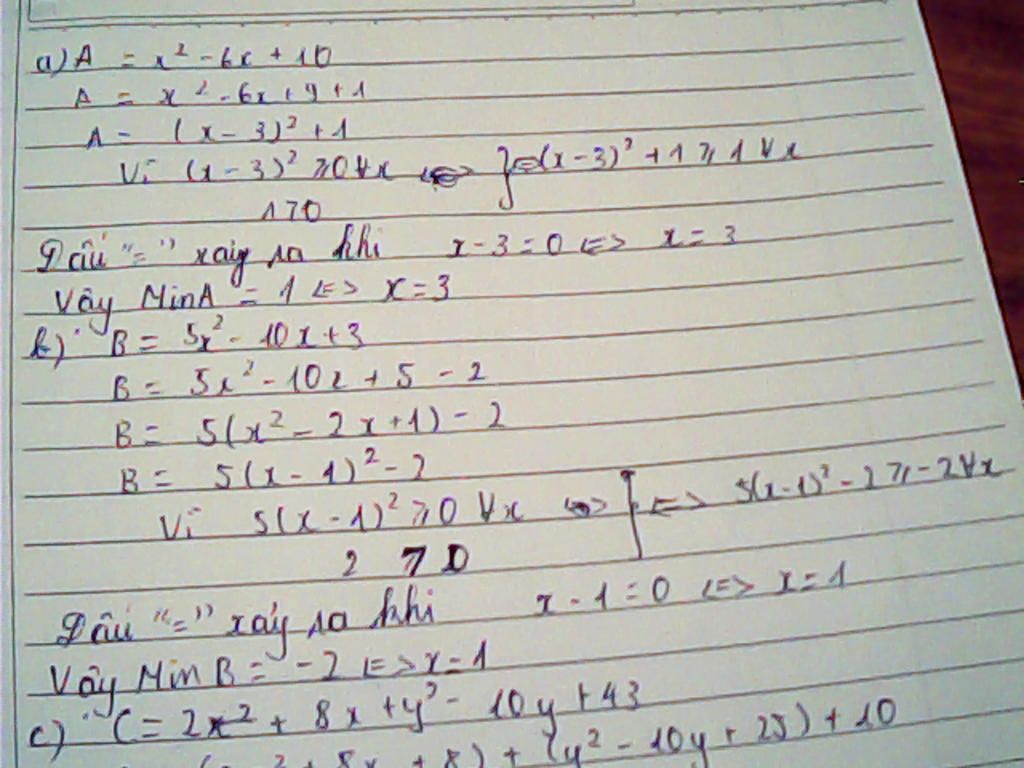 a) A = x² - 6x + 10
A = x² - 6x + 9 + 1
A = (x - 3)² + 1
Vì (x - 3)² ≥ 0 ∀x <=> } <=> (x - 3)² + 1 ≥ 1 ∀x
1 > 0
Dấu "=" xảy ra khi x - 3 = 0 <=> x = 3
Vậy Min A = 1 <=> x = 3
b) B = 5x² - 10x + 3
B = 5x² - 10x + 5 - 2
B = 5(x² - 2x + 1) - 2
B = 5(x - 1)² - 2
Vì 5(x - 1)² ≥ 0 ∀x <=> ] <=> 5(x - 1)² - 2 ≥ -2 ∀x
2 > 0
Dấu "=" xảy ra khi x - 1 = 0 <=> x = 1
Vậy Min B = -2 <=> x = 1
c) C = 2x² + 8x + y² - 10y + 43
+ 8x + 8) + (y² - 10y + 25) + 10